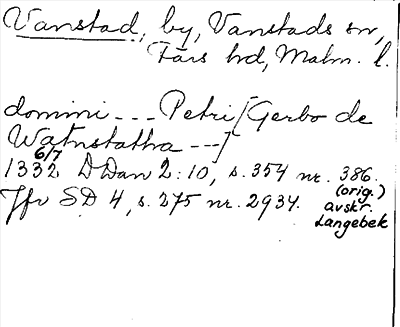 Vanstad, by, Vanstads sn,
Färs hd, Malm. l.
domini --- Petri [Gerbo de
Watnstatha ---]
6/7
1332 DDan 2:10, s. 354 nr. 386.
(orig.)
Jfr SD 4, s. 275 nr. 2934. avskr.
Langebek